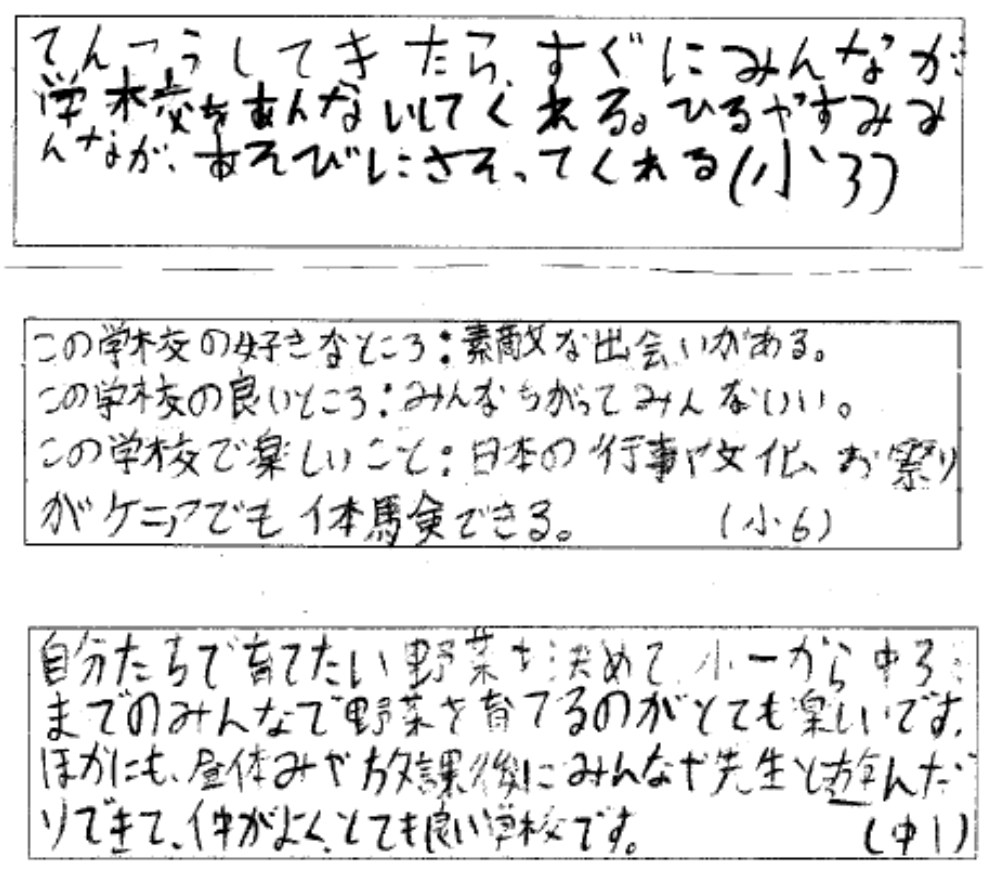 てんこうしてきたら、すぐにみんなが
学校をあんないしてくれる。ひるやすみみ
んなが、あそびにさそってくれる(小3)
この学校の好きなところ:素敵な出会いがある。
この学校の良いところ:みんなちがってみんないい。
この学校で楽しいこと:日本の行事や文化、お祭り
がケニアでも体験できる。 (小6)
自分たちで育てたい野菜を決めて、小一から中3
までのみんなで野菜を育てるのがとても楽しいです。
ほかにも、昼休みや放課後にみんなや先生と遊んだ
りできて、仲がよく、とても良い学校です。 (中1)